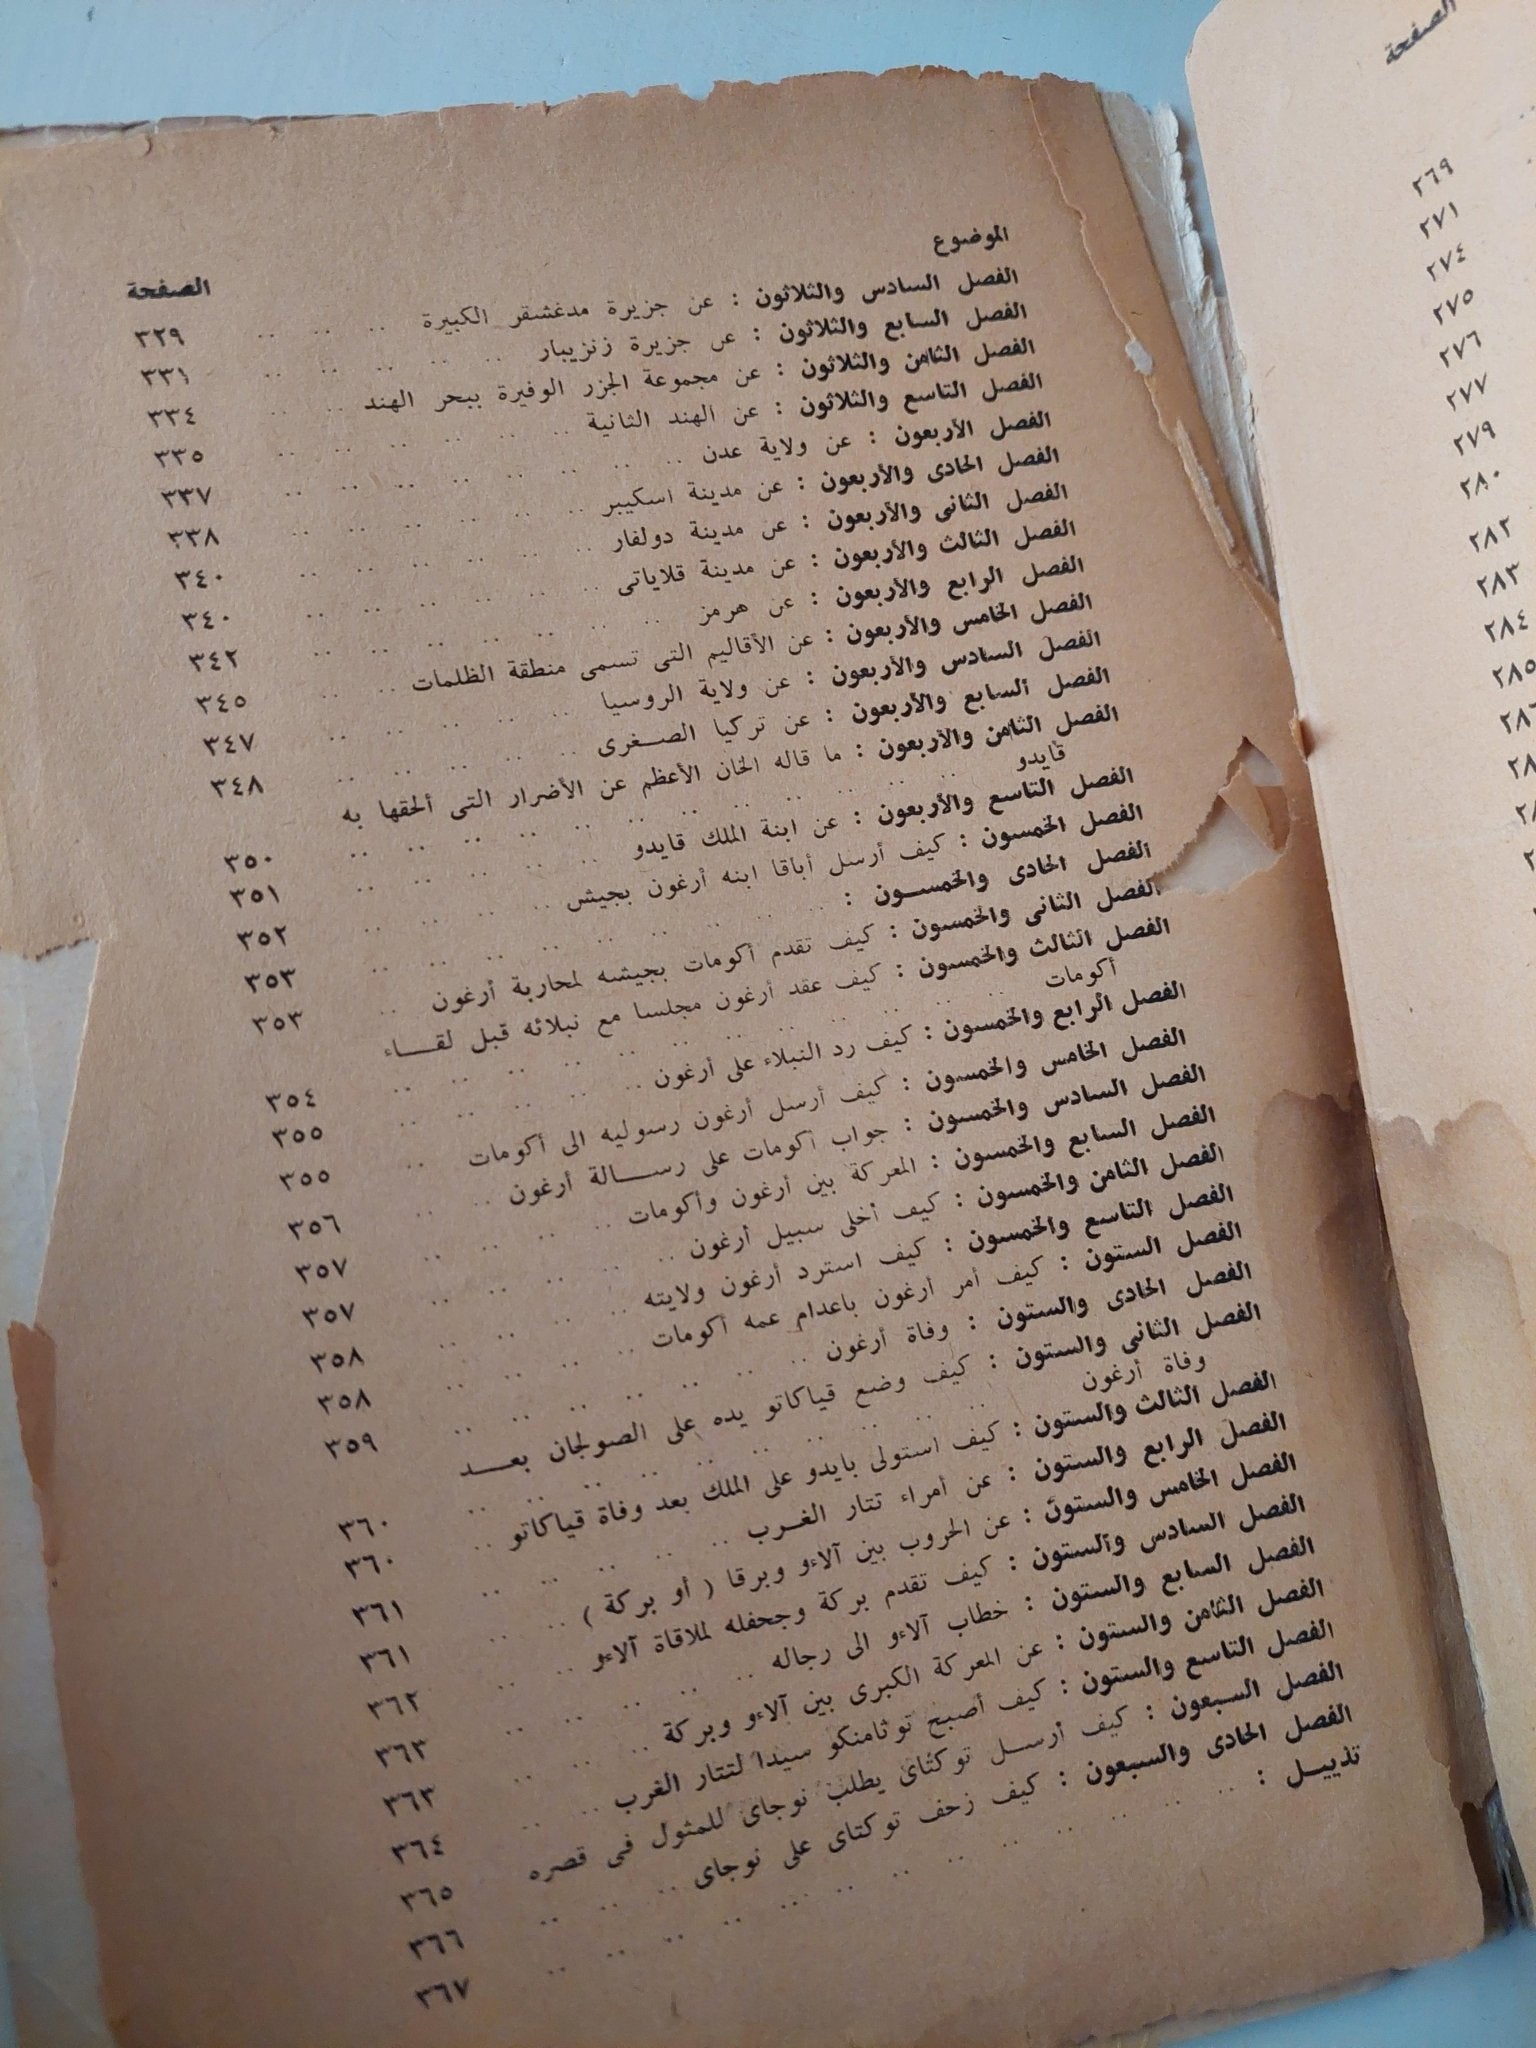 الموضوع الصفحة
الفصل السادس والثلاثون : عن جزيرة مدغشقر الكبيرة .. .. .. ٣٢٩
الفصل السابع والثلاثون : عن جزيرة زنزيبار .. .. .. .. ٣٣١
الفصل الثامن والثلاثون : عن مجموعة الجزر الوفيرة ببحر الهند .. .. ٣٣٤
الفصل التاسع والثلاثون : عن الهند الثانية .. .. .. .. ٣٣٥
الفصل الأربعون : عن ولاية عدن .. .. .. .. .. ٣٣٧
الفصل الحادى والأربعون : عن مدينة اسكيير .. .. .. .. ٣٣٨
الفصل الثانى والأربعون : عن مدينة دولفار .. .. .. .. ٣٤٠
الفصل الثالث والأربعون : عن مدينة قلاياتى .. .. .. .. ٣٤٠
الفصل الرابع والأربعون : عن هرمز .. .. .. .. .. ٣٤٢
الفصل الخامس والأربعون : عن الأقاليم التى تسمى منطقة الظلمات .. .. ٣٤٥
الفصل السادس والأربعون : عن ولاية الروسيا .. .. .. .. ٣٤٧
الفصل السابع والأربعون : عن تركيا الصغرى .. .. .. .. ٣٤٨
الفصل الثامن والأربعون : ما قاله الخان الأعظم عن الأضرار التى ألحقها به
قايدو .. .. .. .. .. .. .. ٣٥٠
الفصل التاسع والأربعون : عن ابنة الملك قايدو .. .. .. .. ٣٥١
الفصل الخمسون : كيف أرسل أباقا ابنه أرغون بجيش .. .. .. ٣٥٢
الفصل الحادى والخمسون : .. .. .. .. .. .. ٣٥٣
الفصل الثانى والخمسون : كيف تقدم أكومات بجيشه لمحاربة أرغون .. ٣٥٣
الفصل الثالث والخمسون : كيف عقد أرغون مجلسا مع نبلائه قبل لقاء
أكومات .. .. .. .. .. .. .. ٣٥٤
الفصل الرابع والخمسون : كيف رد النبلاء على أرغون .. .. .. ٣٥٥
الفصل الخامس والخمسون : كيف أرسل أرغون رسوليه الى أكومات .. ٣٥٥
الفصل السادس والخمسون : جواب أكومات على رسالة أرغون .. .. ٣٥٦
الفصل السابع والخمسون : المعركة بين أرغون وأكومات .. .. .. ٣٥٧
الفصل الثامن والخمسون : كيف أخلى سبيل أرغون .. .. .. ٣٥٧
الفصل التاسع والخمسون : كيف استرد أرغون ولايته .. .. .. ٣٥٨
الفصل الستون : كيف أمر أرغون باعدام عمه أكومات .. .. .. ٣٥٨
الفصل الحادى والستون : وفاة أرغون .. .. .. .. .. ٣٥٩
الفصل الثانى والستون : كيف وضع قياكاتو يده على الصولجان بعد
وفاة أرغون .. .. .. .. .. .. ٣٦٠
الفصل الثالث والستون : كيف استولى بايدو على الملك بعد وفاة قياكاتو .. ٣٦٠
الفصل الرابع والستون : عن أمراء تتار الغرب .. .. .. .. ٣٦١
الفصل الخامس والستون : عن الحروب بين آلاءو وبرقا ( أو بركة ) .. .. ٣٦١
الفصل السادس والستون : كيف تقدم بركة وجحفله لملاقاة آلاءو .. .. ٣٦٢
الفصل السابع والستون : خطاب آلاءو الى رجاله .. .. .. .. ٣٦٣
الفصل الثامن والستون : عن المعركة الكبرى بين آلاءو وبركة .. .. ٣٦٣
الفصل التاسع والستون : كيف أصبح توثامنكو سيدا لتتار الغرب .. .. ٣٦٤
الفصل السبعون : كيف أرسل توكتاى يطلب نوجاى للمثول فى قصره ٣٦٥
الفصل الحادى والسبعون : كيف زحف توكتاى على نوجاى .. .. .. ٣٦٦
تذييل : .. .. .. .. .. .. .. ٣٦٧
الصفحة
٢٦٩
٢٧١
٢٧٤
٢٧٥
٢٧٦
٢٧٧
٢٧٩
٢٨٠
٢٨٢
٢٨٣
٢٨٤
٢٨٥